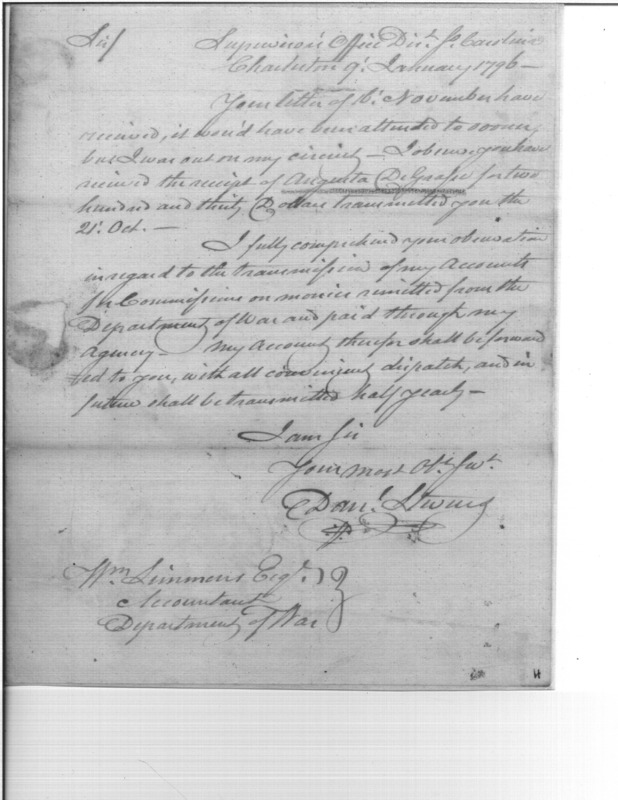 Sir/ Supervisor's Office Dist. So. Carolina
Charleston 9t. January 1796 —
Your letter of 6t. November have
received, it wou'd have been attended to sooner,
but I was out on my circuit — I observe you have
received the receipt of Augusta DeGrasse for two
hundred and thirty Dollars transmitted you the
21t. Oct. —
I fully comprehend your observation
in regard to the transmission of my Accounts
for Commissions on monies remitted from the
Department of War and paid through my
Agency — my Account therefor shall be forward
ed to you, with all convenient dispatch, and in
future shall be transmitted half yearly —
I am Sir
Your most Obt. Svt.
Danl. Stevens
Wm Simmons Esqr.
Accountant
Department of War